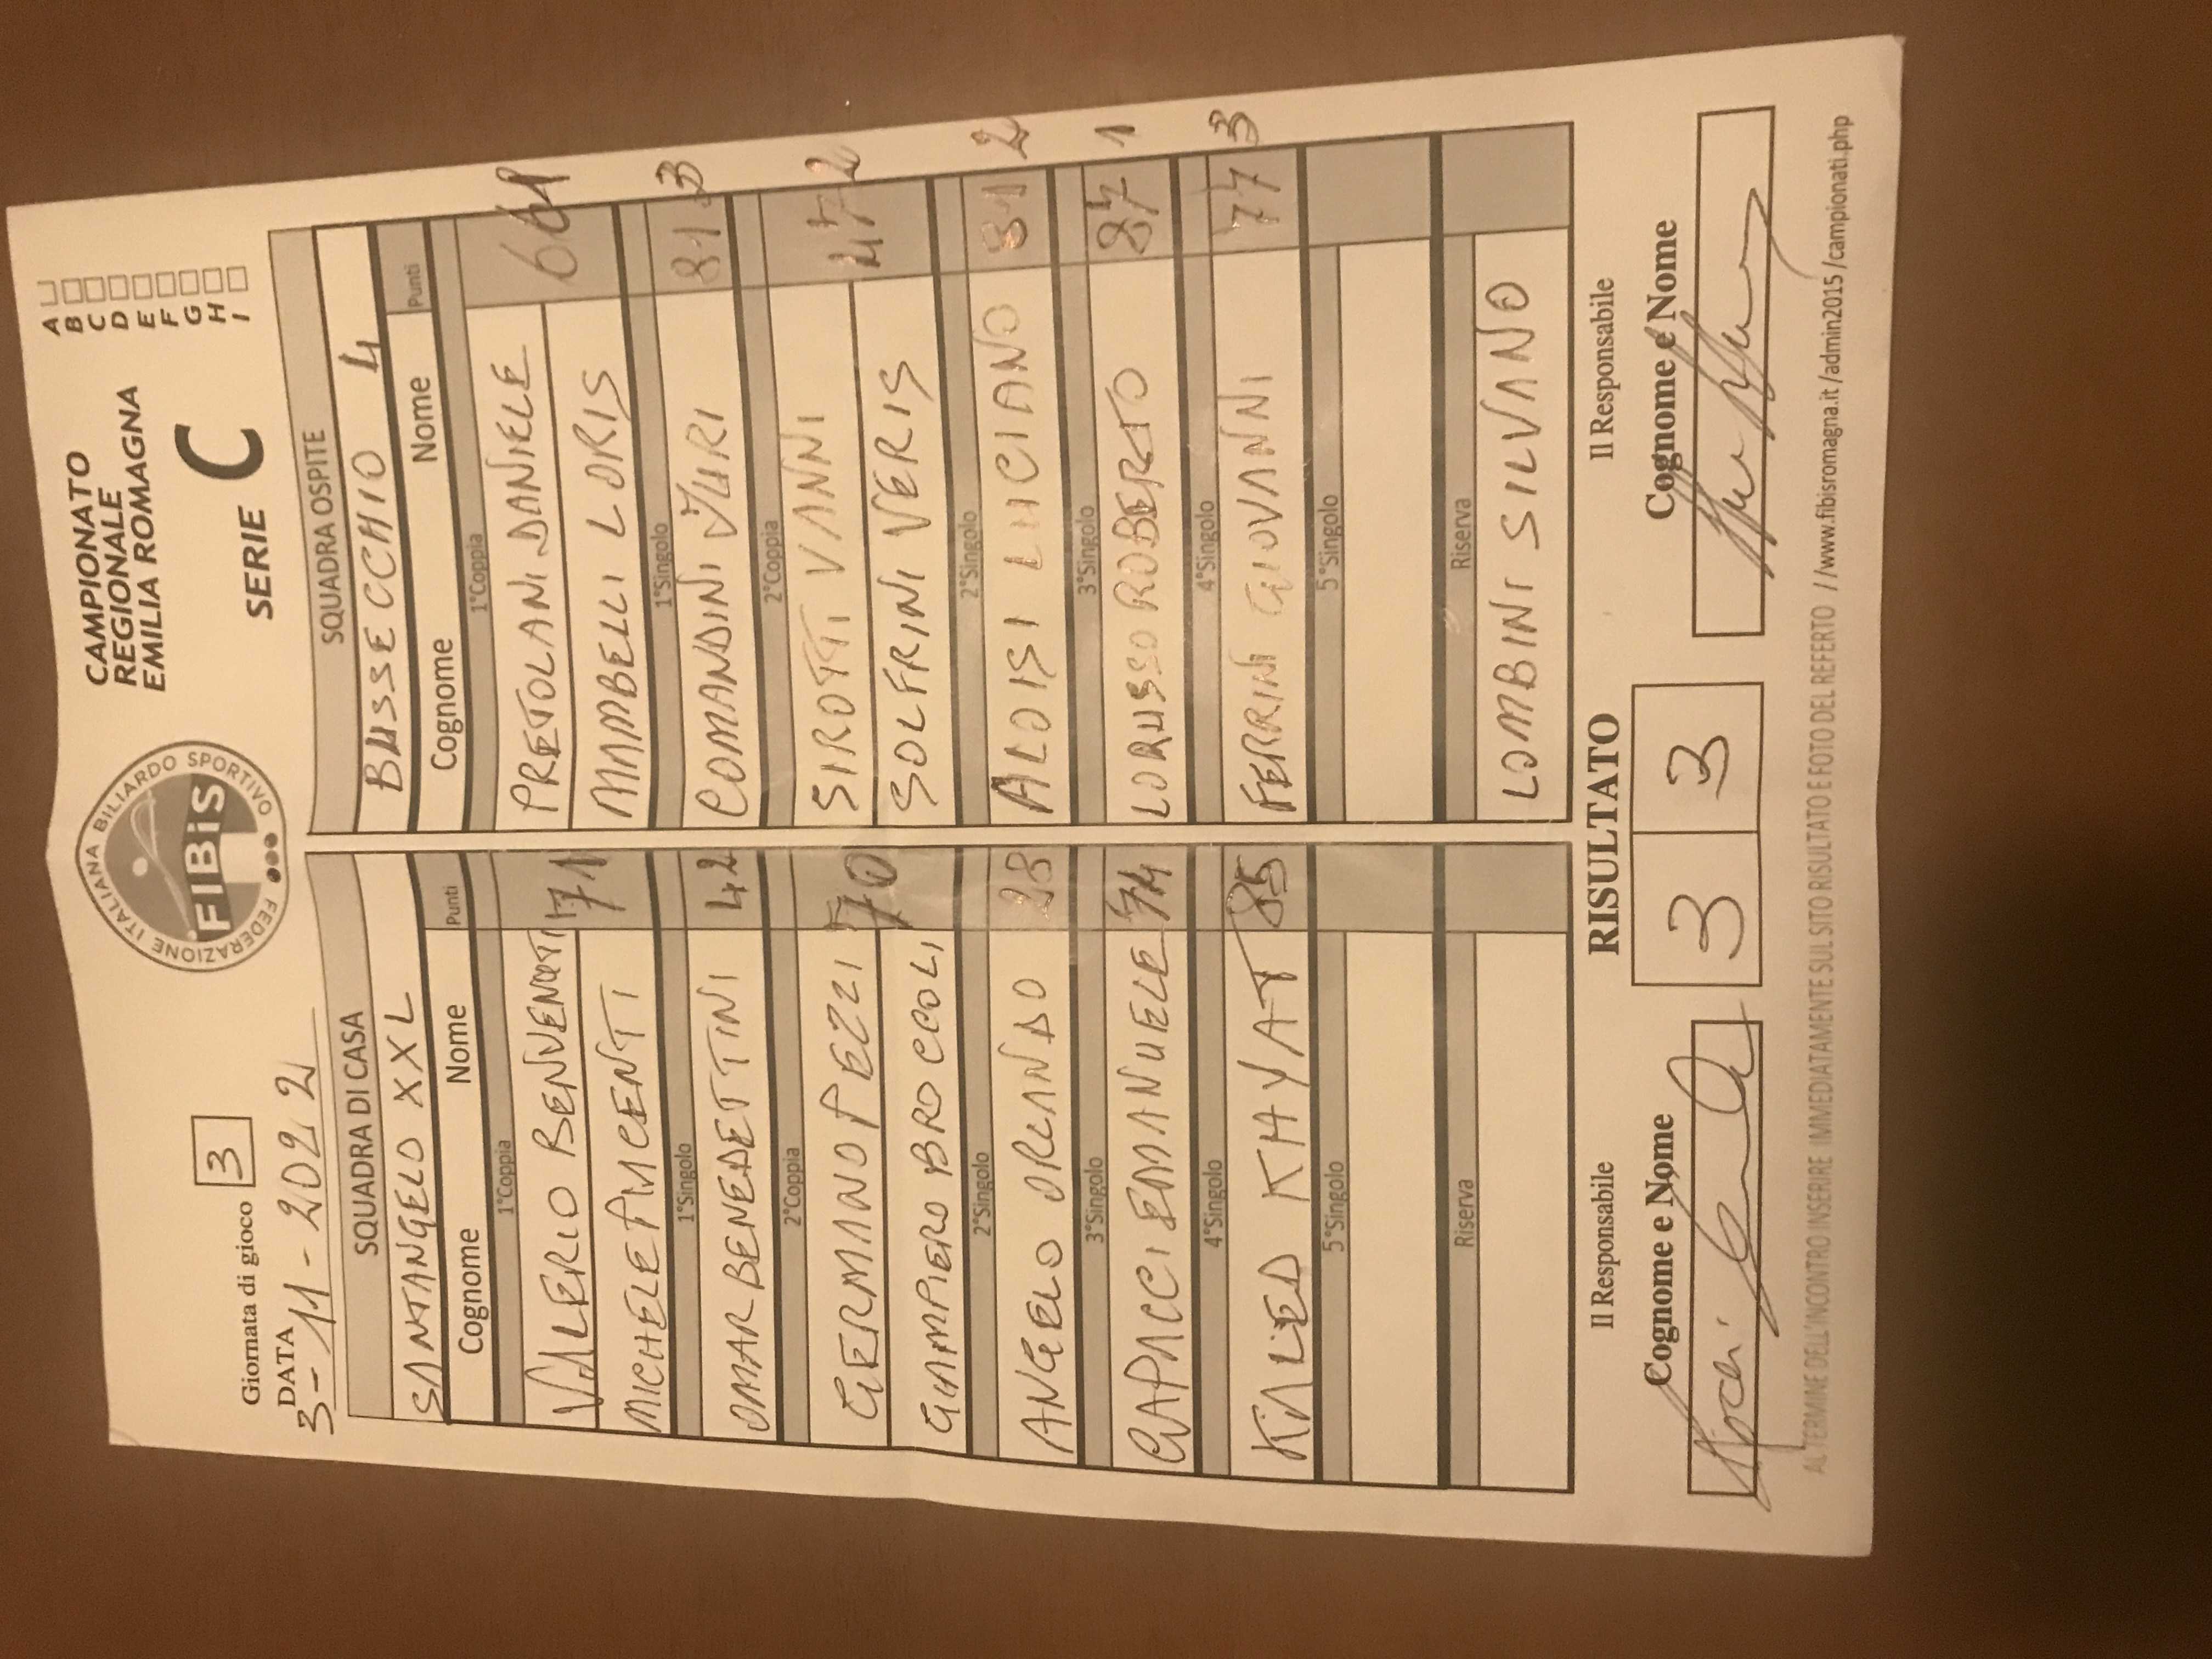 Giornata di gioco 3
DATA
3-11-2022
FEDERAZIONE ITALIANA BILIARDO SPORTIVO
FIBiS
CAMPIONATO
REGIONALE
EMILIA ROMAGNA
SERIE C
A
B
C
D
E
F
G
H
I
SQUADRA DI CASA
SANTANGELO XXL
Cognome Nome Punti
1°Coppia
VALERIO BENVENUTI 71
MICHELE PMCENTI
1°Singolo
OMAR BENEDETTINI 42
2°Coppia
GERMANO PEZZI 70
GIAMPIERO BROCCOLI
2°Singolo
ANGELO ORLANDO 28
3°Singolo
CAPACCI EMANUELE 74
4°Singolo
KALED KHAYAT 85
5°Singolo
Riserva
SQUADRA OSPITE
BUSSECCHIO 4
Cognome Nome Punti
1°Coppia
PRETOLANI DANIELE
MAMBELLI LORIS
1°Singolo
COMANDINI YURI 81 3
2°Coppia
SIROTTI VANNI 47 2
SOLFRINI VERIS
2°Singolo
ALOISI LUCIANO 81 2
3°Singolo
LORUSSO ROBERTO 87 1
4°Singolo
FERRINI GIOVANNI 77 3
5°Singolo
Riserva
LOMBINI SILVANO
RISULTATO
3 3
Il Responsabile
Cognome e Nome
Il Responsabile
Cognome e Nome
AL TERMINE DELL'INCONTRO INSERIRE IMMEDIATAMENTE SUL SITO RISULTATO E FOTO DEL REFERTO //www.fibisromagna.it /admin2015 /campionati.php